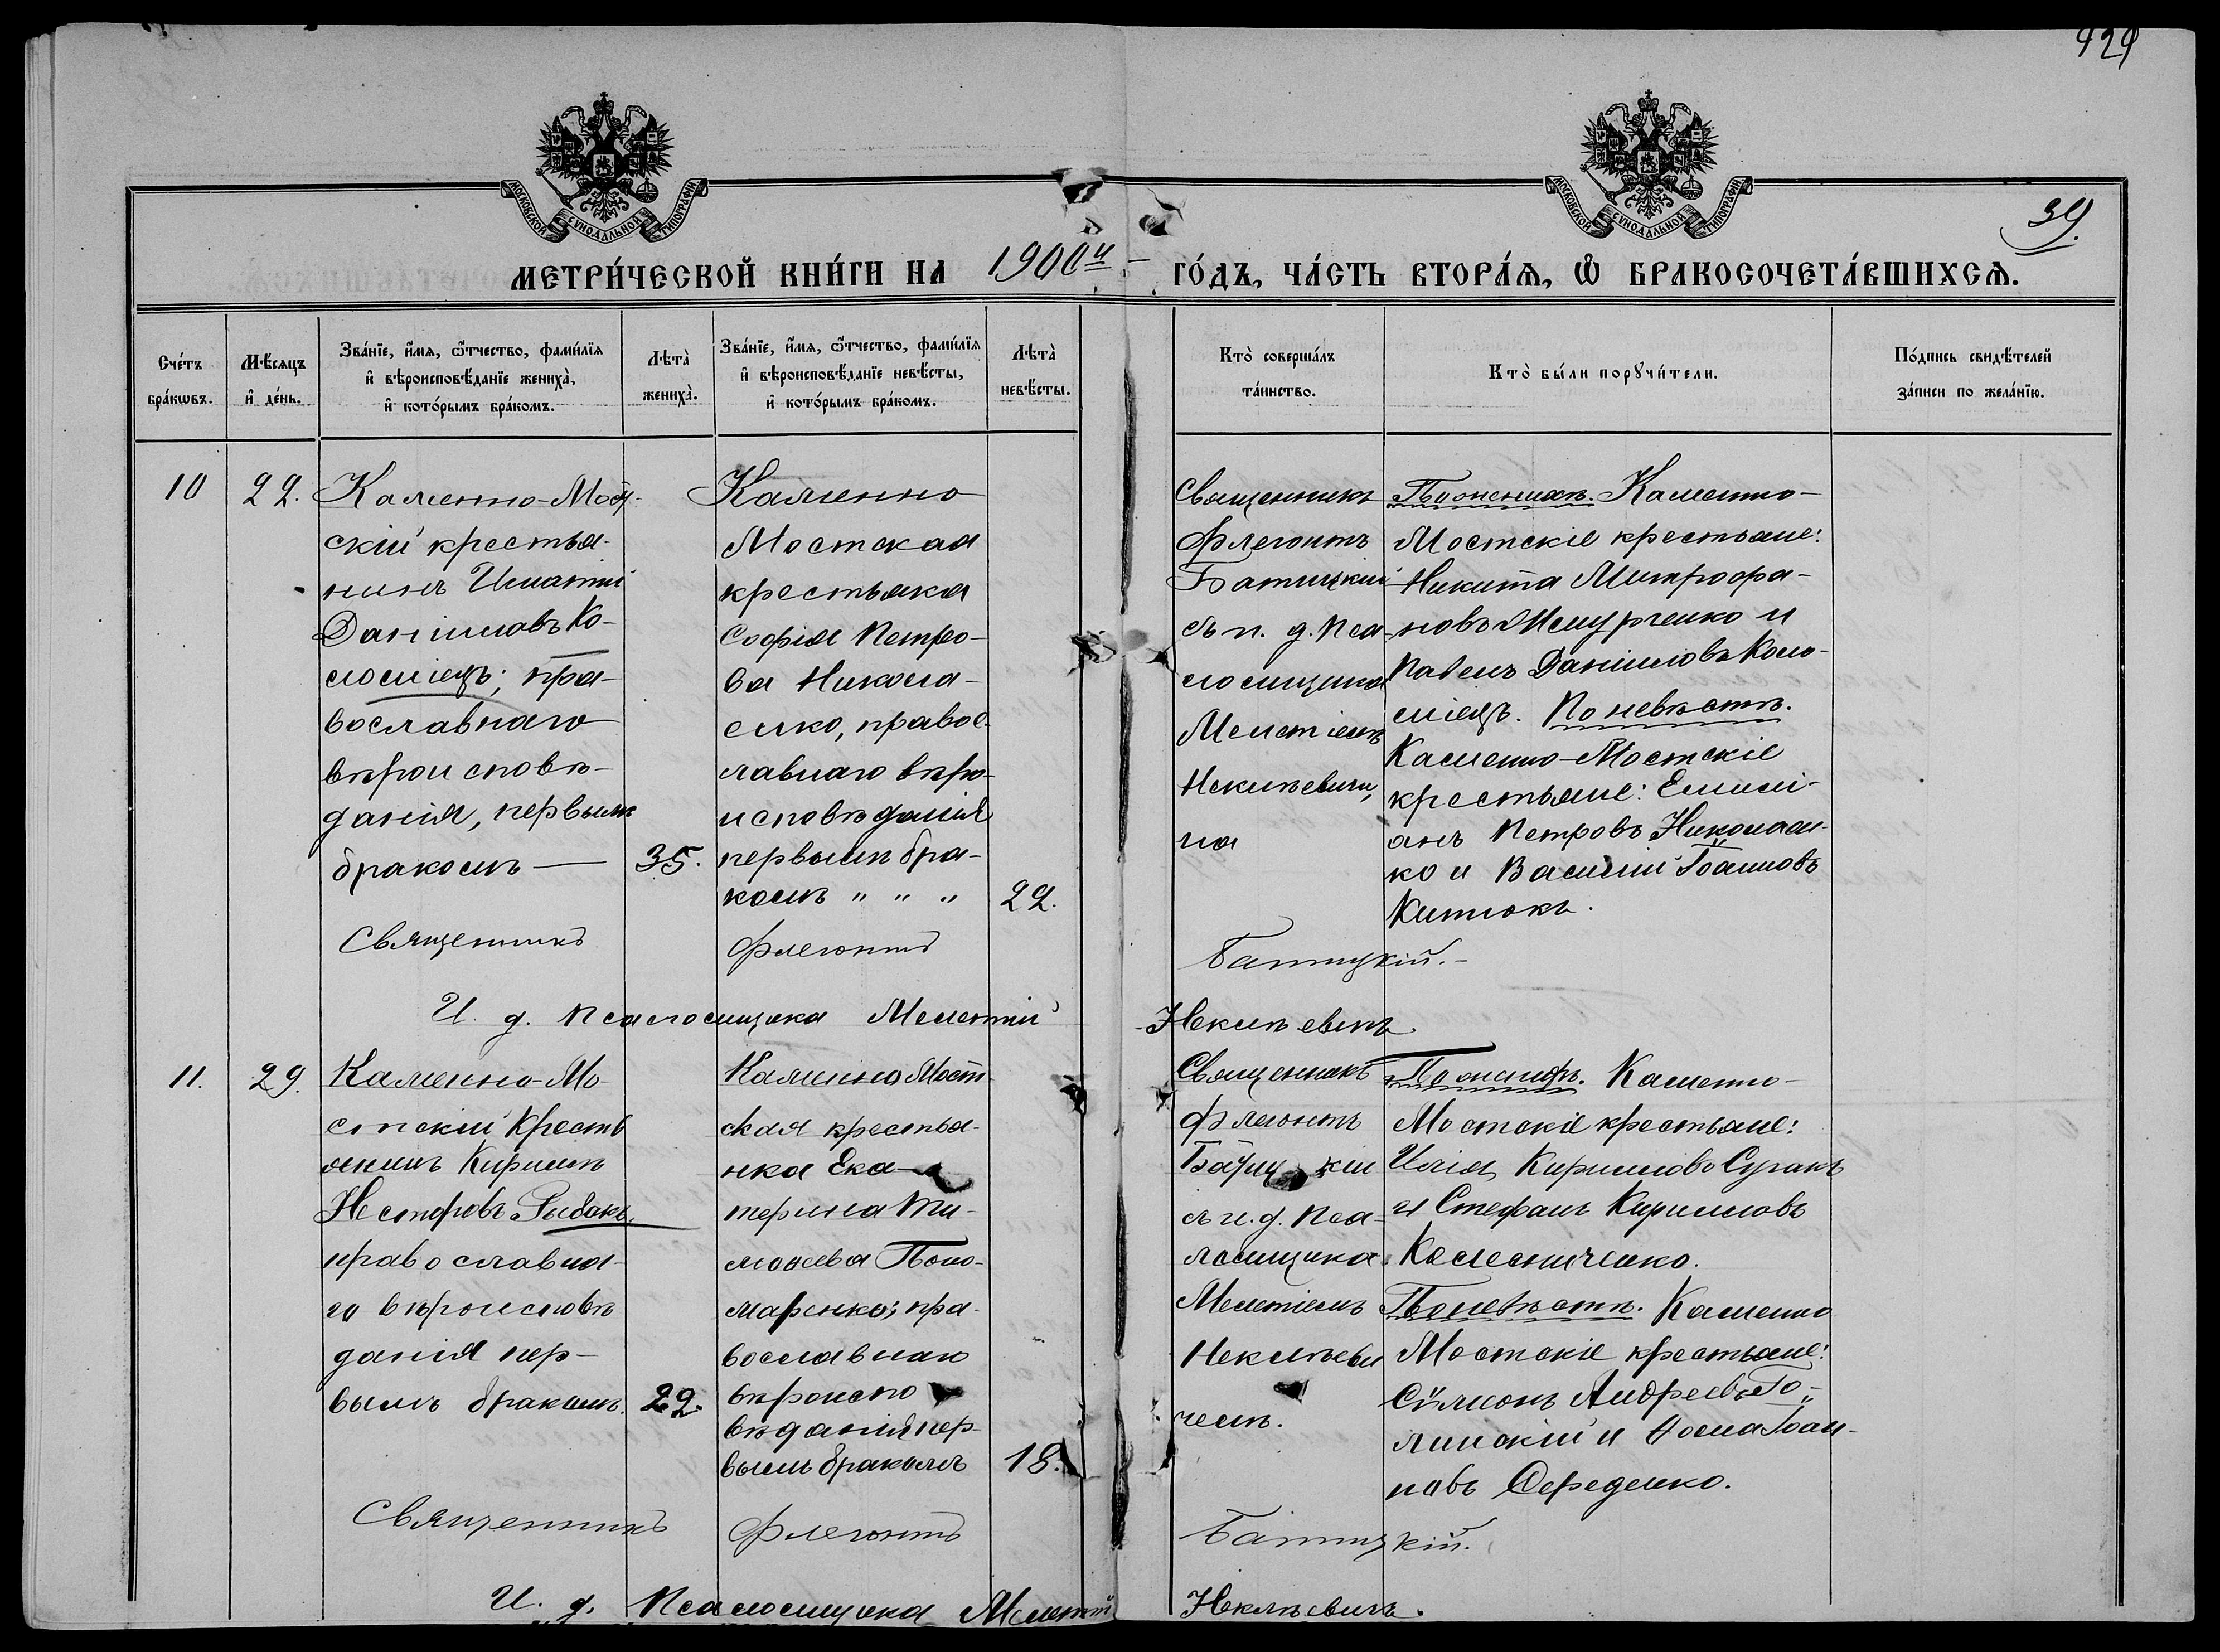 424
МОСКОВСКОЙ СѴНОДАЛЬНОЙ ТИПОГРАФІИ
МОСКОВСКОЙ СѴНОДАЛЬНОЙ ТИПОГРАФІИ
39.
МЕТРИ́ЧЕСКОЙ КНИ́ГИ НА 1900й ГО́ДЪ, ЧА́СТЬ ВТОРА́Ѧ, Ѡ БРАКОСОЧЕТА́ВШИХСѦ.
Сче́тъ бра́кѡвъ.
Мѣ́сяцъ и҆ де́нь.
Зва́нїе, и҆́мѧ, ѻ҆́тчество, фами́лїѧ
и҆ вѣроисповѣ́данїе жениха̀,
и҆ кото́рымъ бра́комъ.
Лѣта̀ жениха̀.
Зва́нїе, и҆́мѧ, ѻ҆́тчество, фами́лїѧ
и҆ вѣроисповѣ́данїе невѣ́сты,
и҆ кото́рымъ бра́комъ.
Лѣта̀ невѣ́сты.
Кто̀ соверша́лъ та́инство.
Кто̀ бы́ли порꙋчи́тели.
По́дпись свидѣ́телей за́писи по жела́нїю.
10
22.
Каменно-Мост-
скій крестья-
нинъ Игнатій
Даніиловъ Ко-
ломіецъ; пра-
вославнаго
вѣроисповѣ-
данія, первымъ
бракомъ —
35.
Каменно
Мостская
крестьянка
Софія Петро-
ва Никола-
енко, правос-
лавнаго вѣро-
исповѣданія
первымъ бра-
комъ " " "
22.
Священникъ
Флегонтъ
Батицкій
съ и. д. Пса-
ломщика
Мелетіемъ
Неклѣевиче
По женихѣ. Каменно-
Мостскіе крестьяне:
Никита Митрофа-
новъ и
Павелъ Даніиловъ Коло-
міецъ. По невѣстѣ.
Каменно-Мостскіе
крестьяне: Емилі-
анъ Петровъ Николаен-
ко и Василій Іоанновъ
Китнокъ.
Священникъ Флегонтъ Батицкій.-
И. д. Псаломщика Мелетій Неклѣевичъ.
11.
29.
Каменно-Мо-
стскій Кресть
янинъ Кириллъ
Несторовъ Рыбакъ,
православна-
го вѣроисповѣ
данія пер-
вымъ бракомъ.
22.
Каменно Мост-
ская крестья-
нка Ека-
терина Ти-
моѳеева Поно-
маренко; пра-
вославнаго
вѣроиспо
вѣданія пер-
вымъ бракомъ
18.
Священникъ
Флегонтъ
Батицкій
съ и. д. Пса-
ломщика
Мелетіемъ
Неклѣеви
чемъ.
По женихѣ. Каменно-
Мостскіе крестьяне:
Илія Кирилловъ Сугакъ
и Стефанъ Кирилловъ
Колесниченко.
По невѣстѣ. Каменно
Мостскіе крестьяне:
Сѵмеонъ Андреевъ Го-
линскій и Ѳома Іоан-
новъ Середенко.
Священникъ Флегонтъ Батицкій.
И. д. Псаломщика Мелетій Неклѣевичъ.